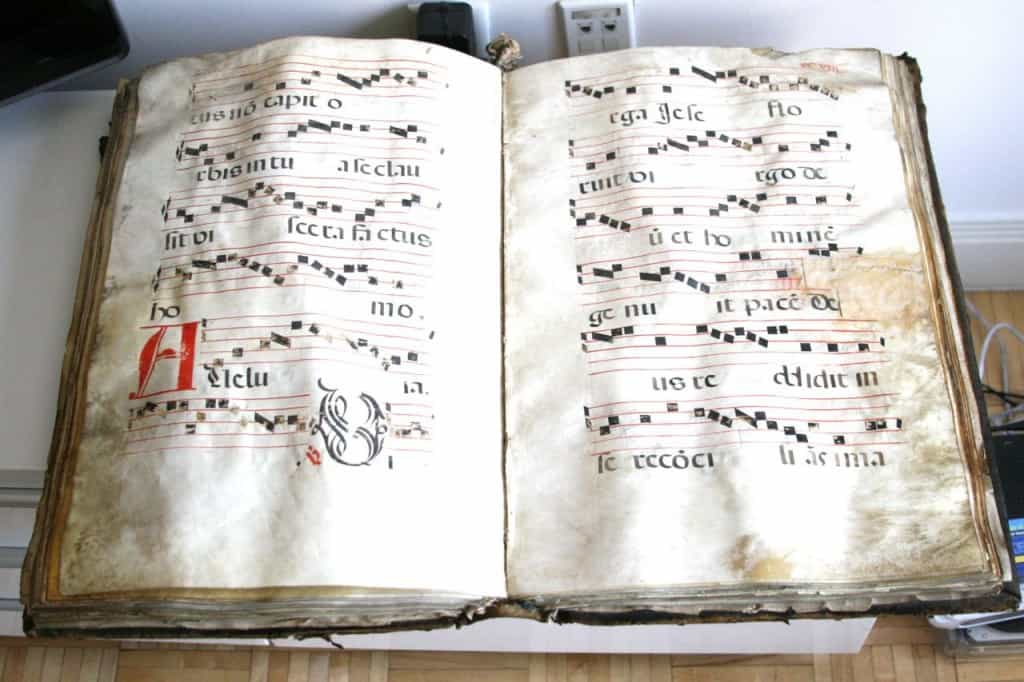 tus nō capit o
rbis in tu a se clau
sit vi scera factus
ho mo.
Allelu ia.
Vi
rga Jese flo
ruit vi rgo de
ū et ho minē
ge nu it pacē De
us re ddidit in
se recōci li ās ima